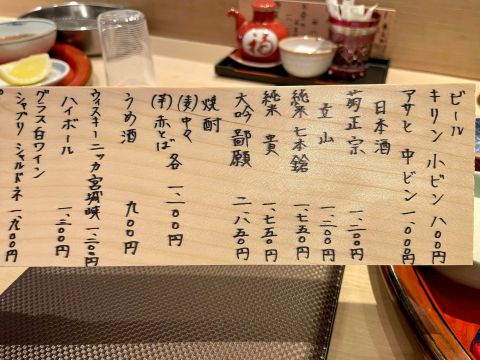 ビール
キリン 小ビン 八〇〇円
アサヒ 中ビン 一、〇〇〇円
日本酒
菊正宗 一、二〇〇円
立山 一、二〇〇円
純米 七本鎗 一、七五〇円
純米 貴 一、七五〇円
大吟 鄙願 二、八五〇円
焼酎
(麦)中々
(芋)赤とば 各 一、二〇〇円
うめ酒 九〇〇円
ウィスキー ニッカ 宮城峡 一、三〇〇円
ハイボール 一、二〇〇円
グラス白ワイン
シャブリ シャルドネ 一、九〇〇円
福